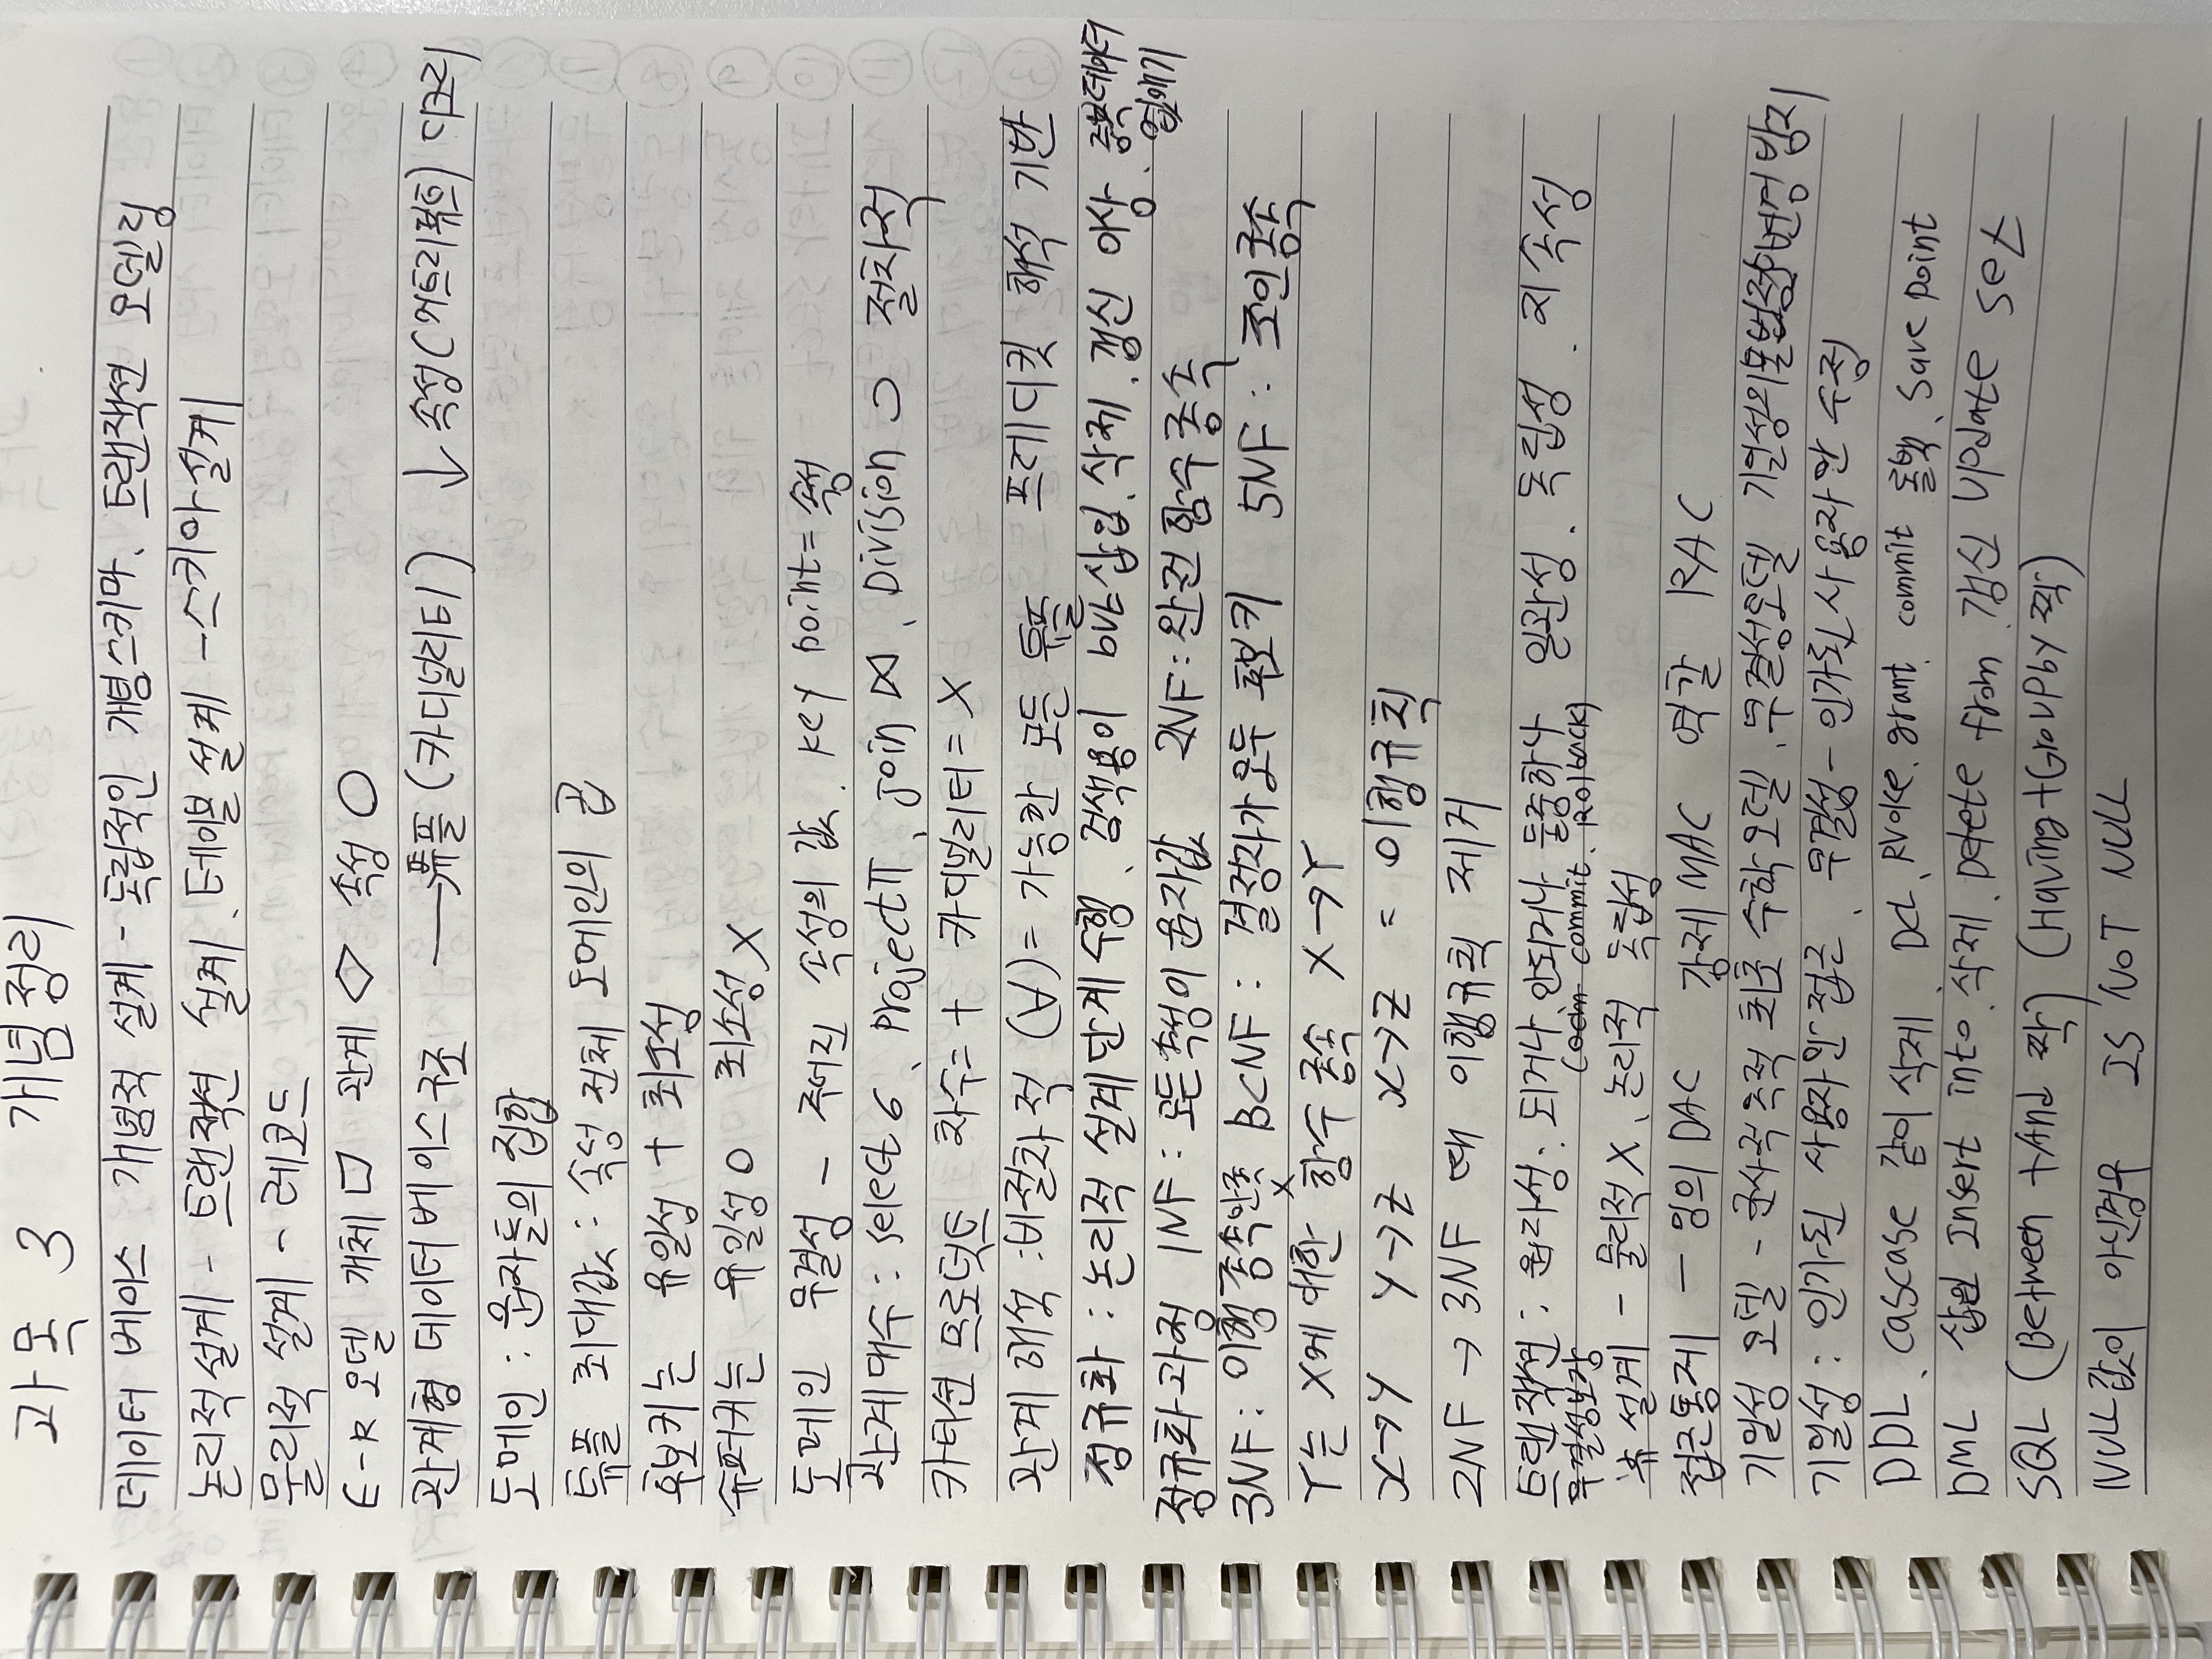 과목 3 개념정리
데이터 베이스 개념적 설계 - 독립적인 개념스키마, 트랜잭션 모델링
논리적설계 - 트랜잭션 설계, 테이블 설계 - 스키마설계
물리적 설계 - 레코드
E-R 모델 개체 □ 관계 ◇ 속성 ○
관계형 데이터베이스구조 → 튜플 (카디널리티) ↓ 속성(어트리뷰트) 디그리
도메인 : 원자들의 집합
튜플 최대값 : 속성 전체 도메인의 곱
후보키는 유일성 + 최소성
슈퍼키는 유일성 O 최소성 X
도메인 무결성 - 주어진 속성의 값. key point = 속성
관계대수 : select σ, Project π, Join ⋈, Division ⊃ 절차적
카티션 프로덕트 차수 = + 카디널리티 = X
관계해석 : 비절차적 (∀) = 가능한 모든 튜플 프레디킷 해석 기반
정규화 : 논리적 설계단계 수행, 검색용이 삽입.삭제.갱신 이상. 중복데이터 없애기
정규화과정 1NF : 모든속성이 원자값 2NF : 완전 함수종속
3NF : 이행 종속만족 X BCNF : 결정자가모두 후보키 5NF : 조인종속
Y는 X에 대한 함수 종속 X→Y
X→Y Y→Z X→Z = 이행규칙
2NF → 3NF 때 이행규칙 제거
트랜잭션 : 원자성 : 되거나 안되거나 둘중하나 일관성. 독립성. 지속성
무결성보장 commit. Rollback)
뷰 설계 - 물리적 X, 논리적 독립성
접근통제 - 임의 DAC 강제 MAC 역할 RAC
기밀성 모델 - 군사적 최초 수학 모델. 무결성모델 기업성의 불법정보변경방지
기밀성 : 인가된 사용자만 접근, 무결성 - 인가된 사용자만 수정
DDL. cascase 같이 삭제, DCL, Rvoke. grant. commit 롤백, save point
DML 삽입 Insert into. 삭제. Delete from 갱신 update set
SQL (Between + And 짝) (Having + Group by 짝)
NULL값이 아닌경우 IS NOT NULL